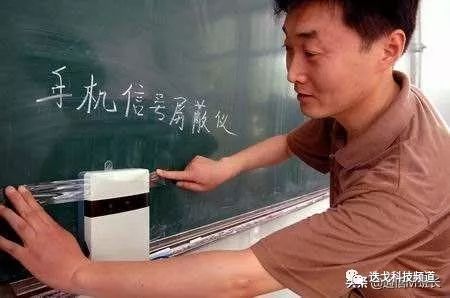 手机信号屏蔽仪
迭戈科技频道